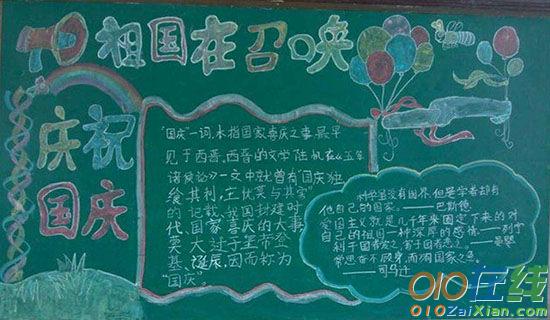 祖国在召唤
庆祝
国庆
"国庆"一词，本指国家喜庆之事，最早
见于西晋。西晋的文学陆机在《五等
诸侯论》一文中就曾有"国庆独
飨其利，主忧莫与其害"
的记载，我国封建时
代、国家喜庆的大事
莫大过于皇帝登
基、诞辰，因而称为
"国庆。
科学虽没有国界，但是学者却有
他自己的国家。——巴斯德
爱国主义就是几千年来固定下来的对
自己的祖国一种深厚的感情。——列宁
利于国者爱之，害于国者恶之。——晏婴
常思奋不顾身，而殉国家之急。
——司马迁
010在线
010ZaiXian.com